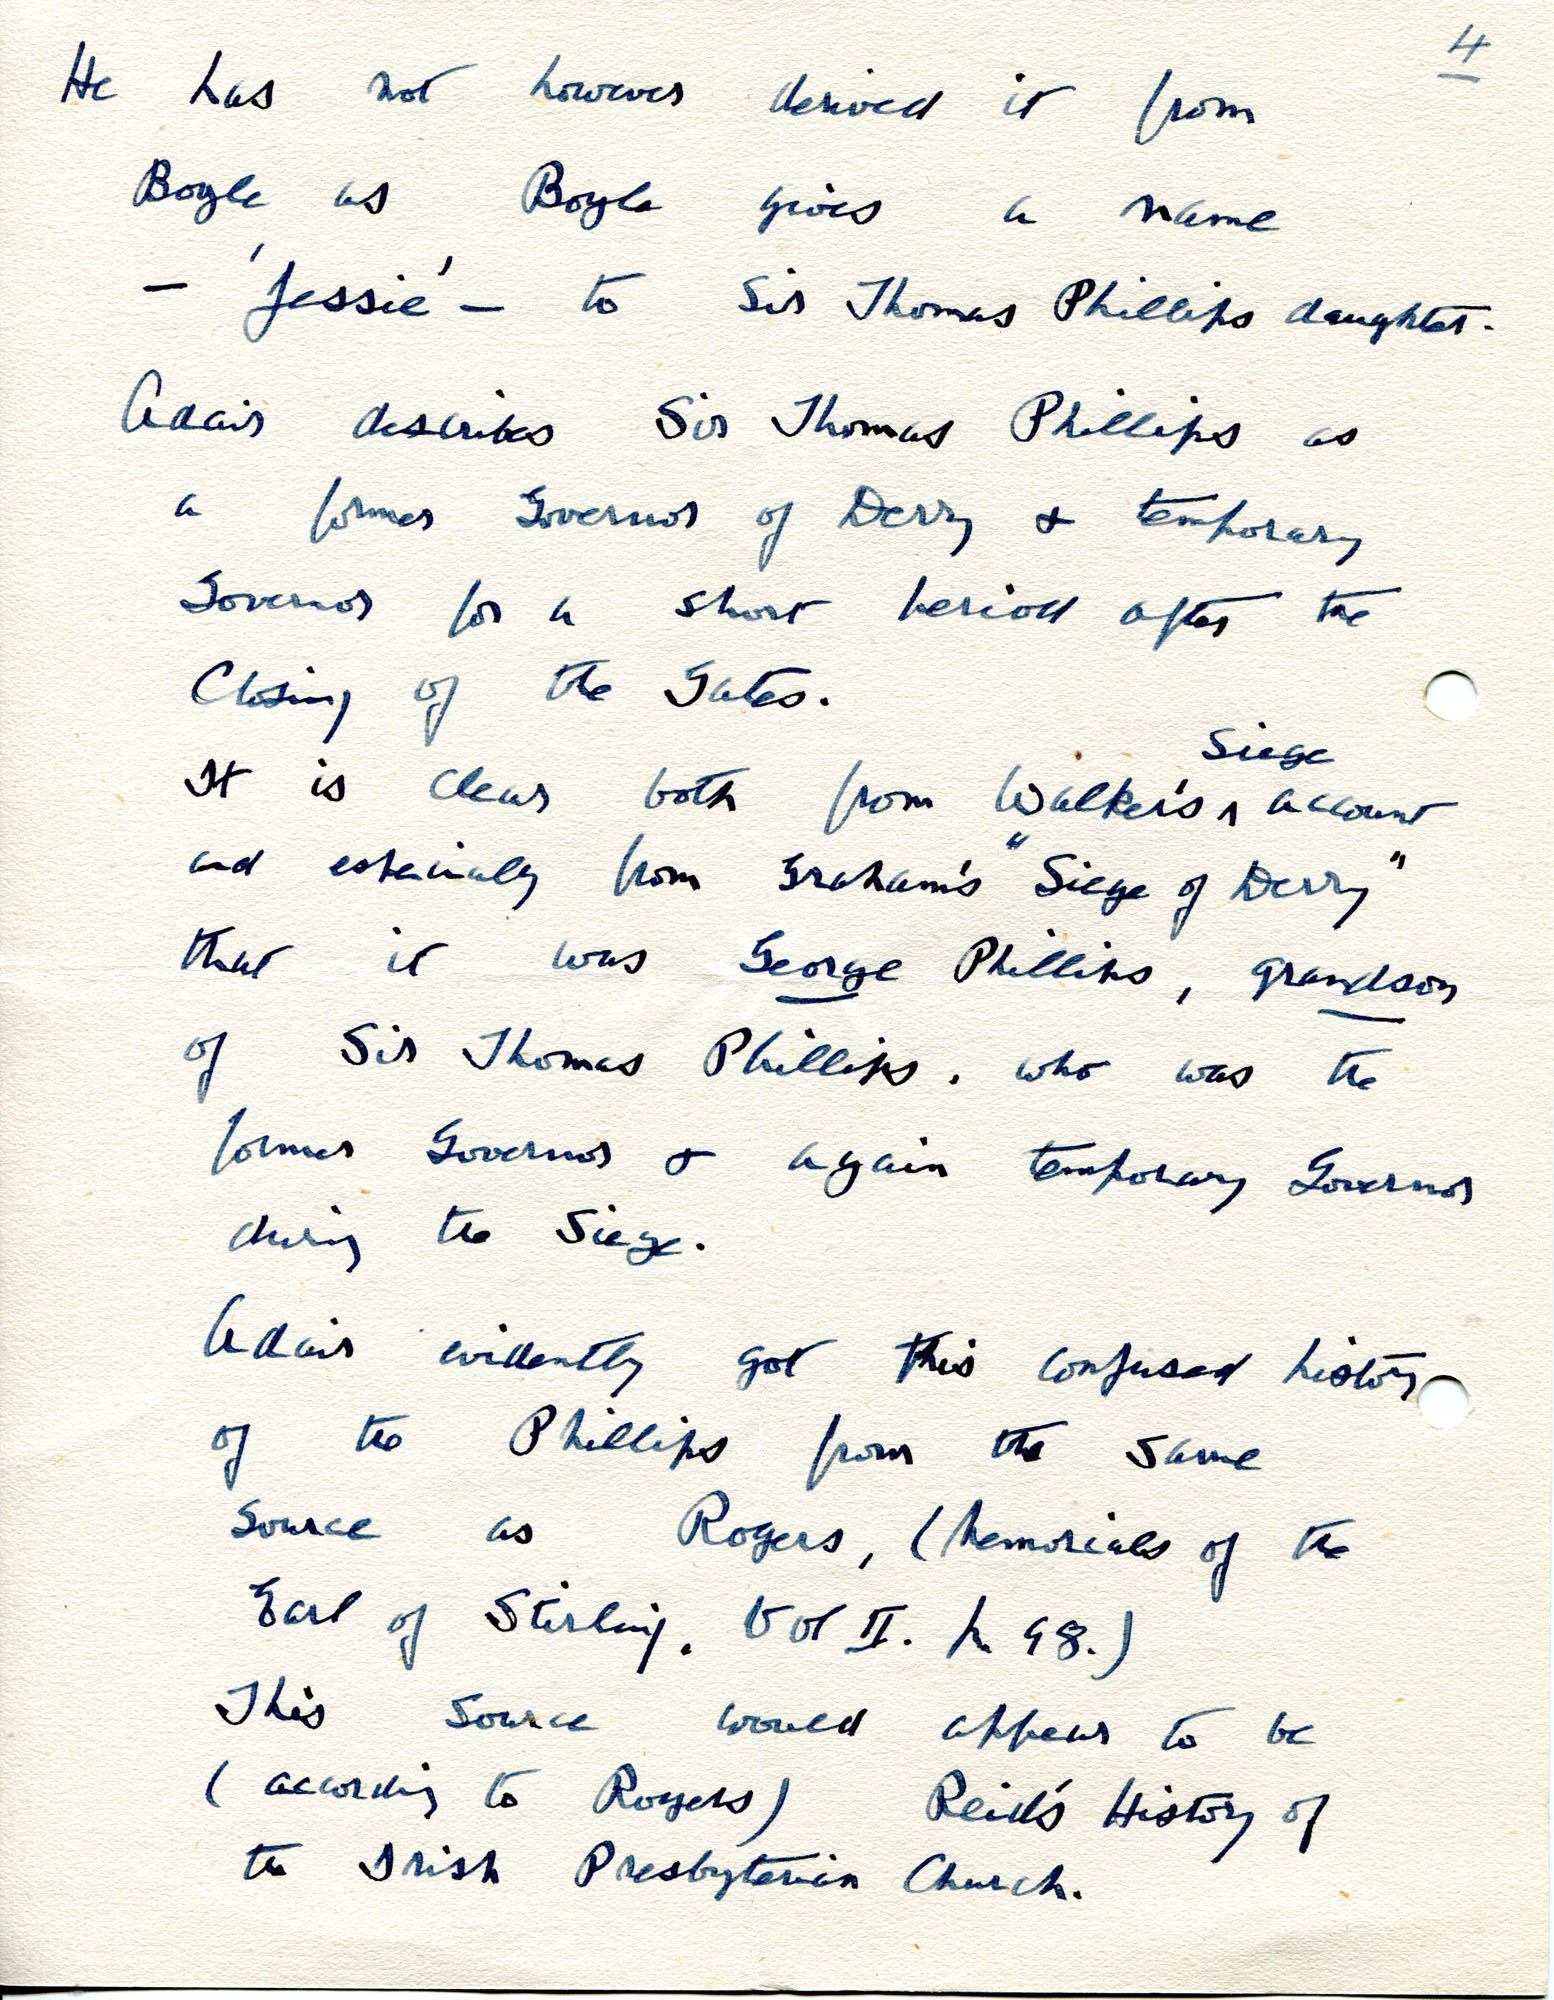 4
He has not however derived it from
Boyle as Boyle gives a name
– 'Jessie' – to Sir Thomas Phillips daughter.
Adair describes Sir Thomas Phillips as
a former Governor of Derry & temporary
Governor for a short period after the
Closing of the Gates.
Siege
It is clear both from Walker's ^ account
and especially from Graham's "Siege of Derry"
that it was George Phillips, grandson
of Sir Thomas Phillips. who was the
former Governor & again temporary Governor
during the Siege.
Adair evidently got this confused history
of the Phillips from the same
source as Rogers, (Memorials of the
Earl of Stirling. Vol II. p. 98.)
This source would appear to be
(according to Rogers) Reid's History of
the Irish Presbyterian Church.